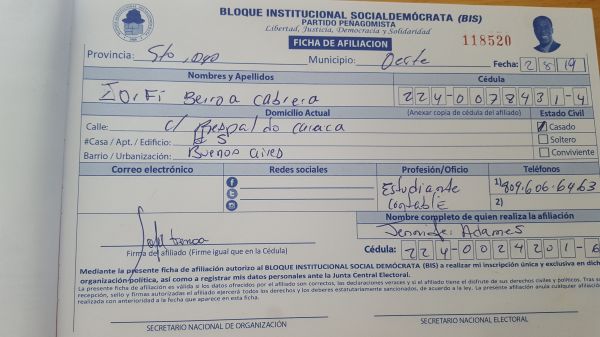 BLOQUE INSTITUCIONAL SOCIALDEMÓCRATA (BIS)
PARTIDO PEÑAGOMISTA
Libertad, Justicia, Democracia y Solidaridad
FICHA DE AFILIACION
118520
Provincia: Sto, Dgo Municipio: Oeste Fecha: 2 8 19
Nombres y Apellidos Cédula
Berroa Cabrera 224-0078431-4
Domicilio Actual (Anexar copia de cédula del afiliado) Estado Civil
Calle: c/ Respaldo Caraca Casado
#Casa / Apt. / Edificio: # 5 Soltero
Barrio / Urbanización: Buenos Aires Conviviente
Correo electrónico Redes sociales Profesión/Oficio Teléfonos
Estudiante 1) 809-606-6463
Contable 2)
Nombre completo de quien realiza la afiliación
Jennifer Adames
Firma del afiliado (Firme igual que en la Cédula) Cédula: 224-0024201-6
Mediante la presente ficha de afiliación autorizo al BLOQUE INSTITUCIONAL SOCIAL DEMÓCRATA (BIS) a realizar mi inscripción única y exclusiva en dicha
organización política, así como a registrar mis datos personales ante la Junta Central Electoral.
La presente ficha de afiliación es válida si los datos ofrecidos por el afiliado son correctos, las declaraciones veraces y si el afiliado tiene el disfrute de sus derechos civiles y políticos. Tras su
recepción, sello y firmas autorizadas el afiliado ejercerá todos los derechos y los deberes estatutariamente sancionados, de acuerdo a la ley. La presente afiliación anula cualquier afiliación
realizada con anterioridad a la fecha que aparece en esta ficha.
SECRETARIO NACIONAL DE ORGANIZACIÓN SECRETARIO NACIONAL ELECTORAL